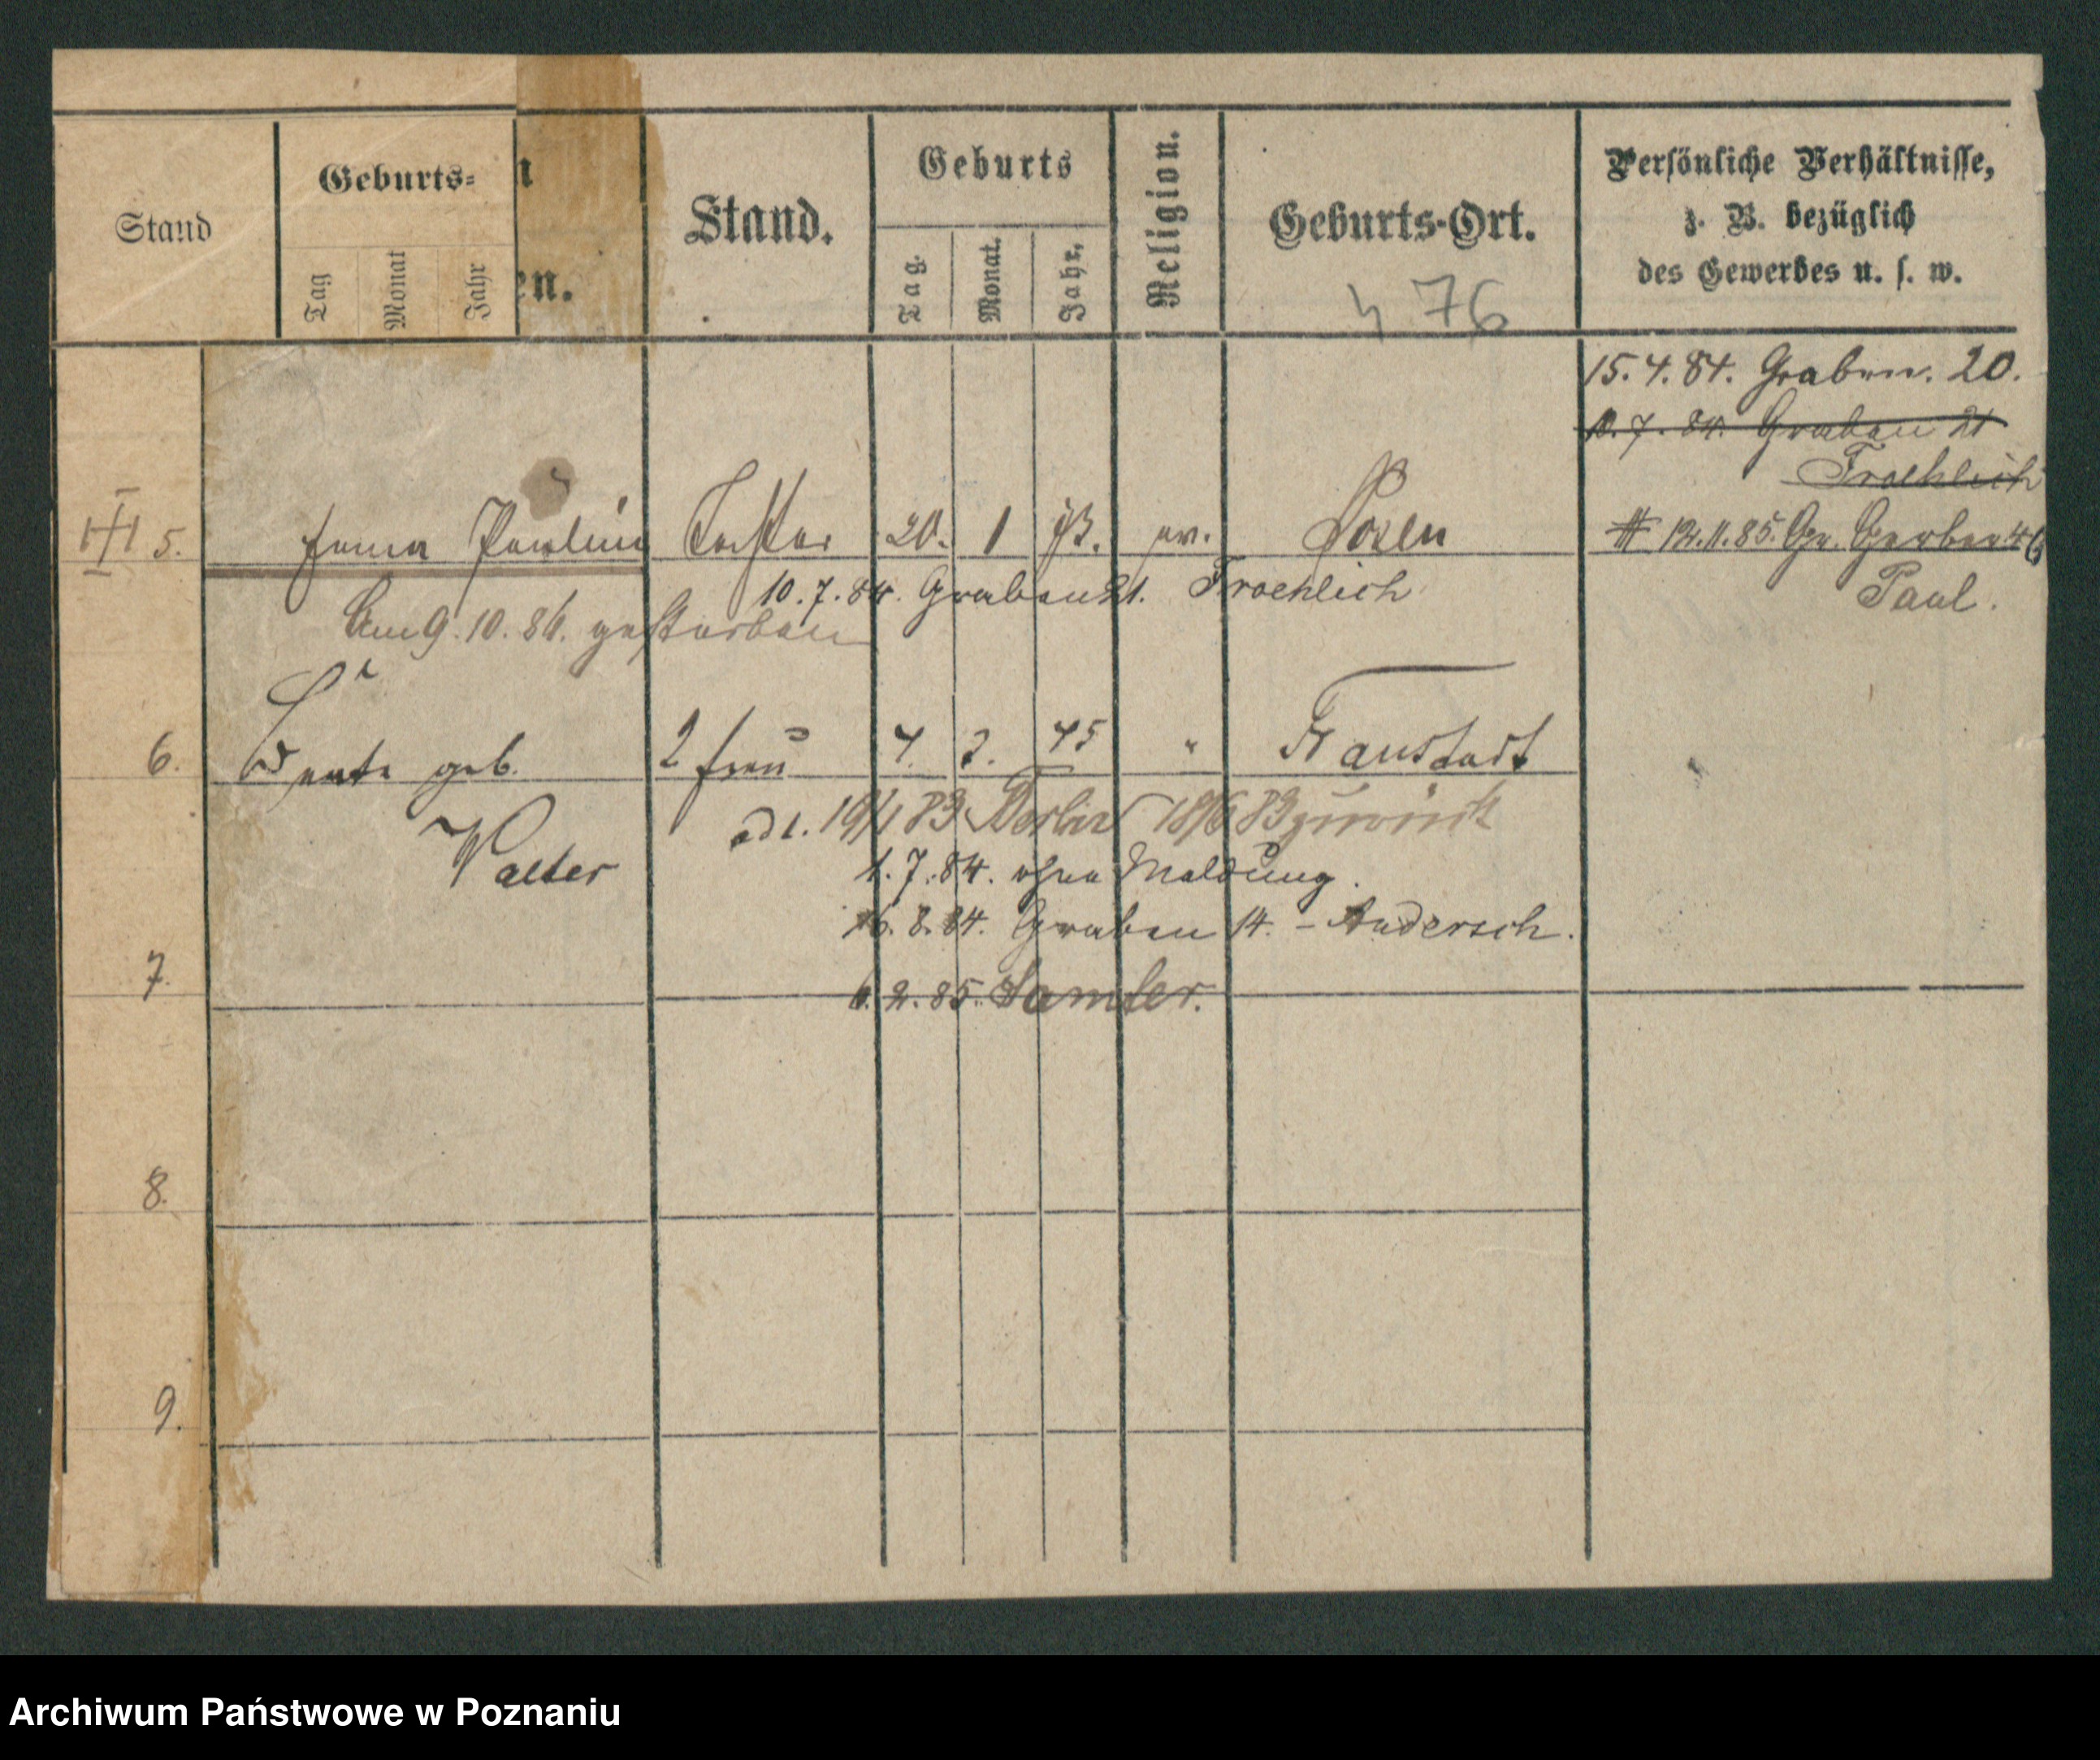 Stand
Geburts-
Tag
Monat
Jahr
n
en.
Stand.
Geburts
Tag.
Monat.
Jahr.
Religion.
Geburts-Ort.
476
Persönliche Verhältnisse,
z. B. bezüglich
des Gewerbes u. s. w.
15. 4. 84. Graben. 20.
10. 7. 84. Graben 21
Froehlich
5. Pauline Tochter 20. 1 73. ev. Posen
12. 11. 85. Gr. Gerber 46
Paul.
10. 7. 84. Graben 21. Froehlich
Am 9. 10. 86. gestorben
6. geb. 2 Frau 4. 2. 45 " Fraustadt
Walter
19/1 83 Berlin 18/6 83 zurück
1. 7. 84. ohne Meldung.
16. 8. 84. Graben 14. - Andersch.
7.
6. 2. 85. Samter.
8.
9.
Archiwum Państwowe w Poznaniu